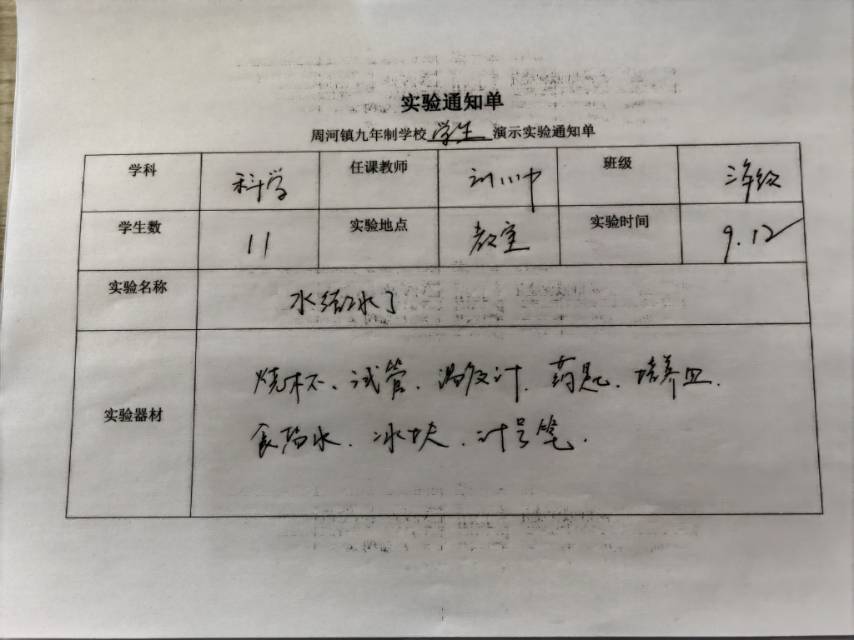 实验通知单
周河镇九年制学校 学生 演示实验通知单
学科 科学 任课教师 班级 三年级
学生数 11 实验地点 教室 实验时间 9.12
实验名称 水结冰了
实验器材 烧杯、试管、温度计、药匙、培养皿、
食盐水、冰块、记号笔.